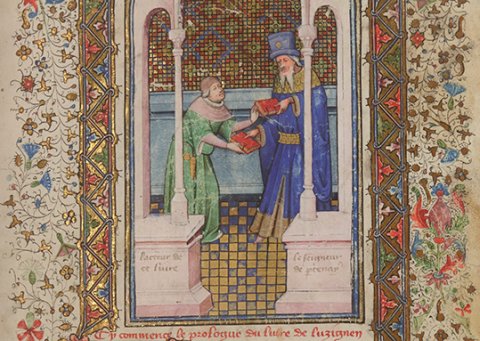 lacteur de
ce liure
le seigneur
de ptenay
Cy commence le prologue du liure de luzignen